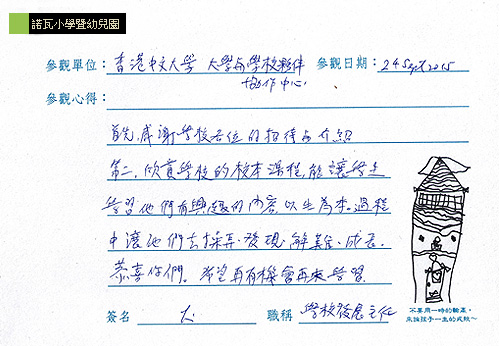 諾瓦小學暨幼兒園
參觀單位：香港中文大學 大學與學校夥伴 參觀日期：24 Sept 2015
協作中心
參觀心得：
首先，感謝學校各位的招待与介紹
第二，欣賞學校的校本課程，能讓學生
學習他們有興趣的內容，以生為本。過程
中讓他們去探索、發現、解難、成長。
恭喜你們。希望再有機會再來學習。
簽名 職稱 學校發展主任
不要用一時的輸贏，
來論孩子一生的成敗～